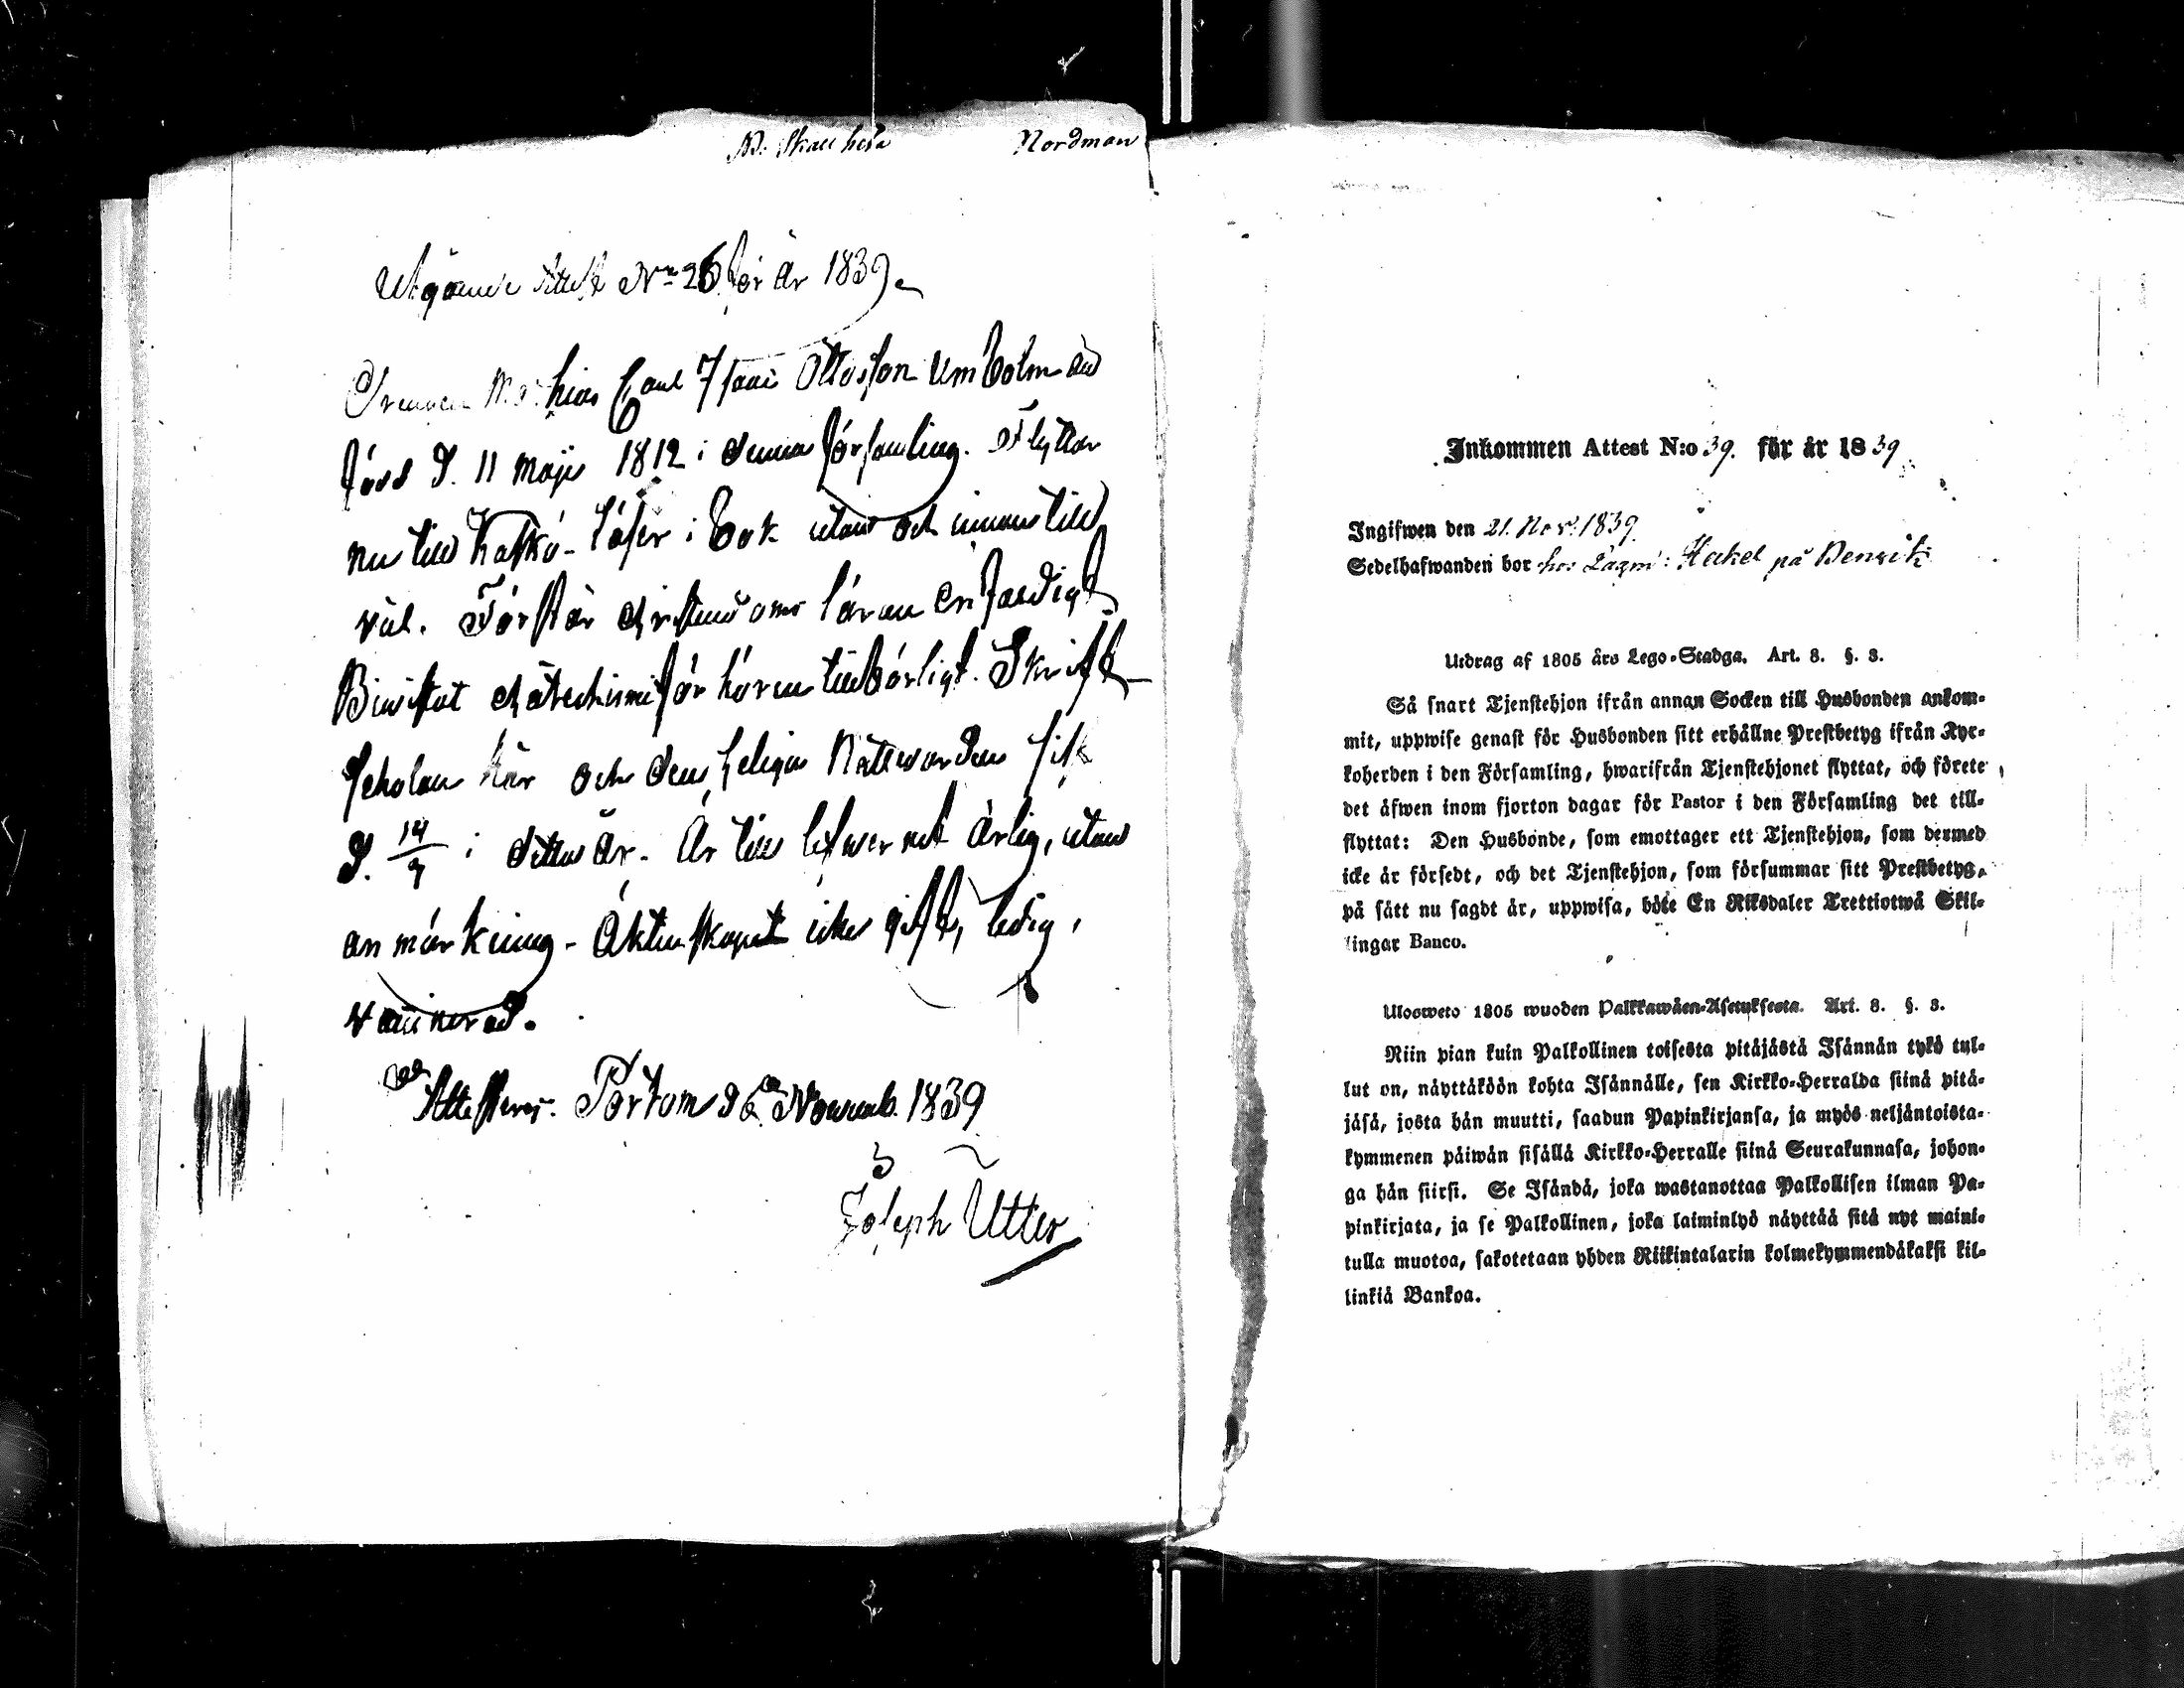 N. Skall heta Nordman
Utgående Attest No 26 för år 1839
Drengen Mathias Carl Isaac Ottosson Umbolm
född d. 11 Maji 1812 i denna församling. Flyttar
nu till Kaskö. Läser i bok utan och innan till
väl. Förstår christendoms läran enfaldigt
Biwistat Catechismi förhören tillbörligt. Skrift
scholan här och den heliga Nattwarden sist
d. 14/9 i detta år. Är till lefwernet ärlig, utan
anmärkning. Äktenskapet icke gift, ledig,
vaccinerad.
Attesterar. Pörtom d 6 Novemb. 1839
Joseph Utter
Inkommen Attest N:o 39. för år 1839
Ingifwen den 21. Nov. 1839
Sedelhafwanden bor hos Lägm: Heckel på Benvik
Utdrag af 1805 års Lego-Stadga. Art. 8. §. 3.
Så snart Tjenstehjon ifrån annan Socken till Husbonden ankom-
mit, uppwise genast för Husbonden sitt erhållne Prestbetyg ifrån Kyr-
koherden i den Församling, hwarifrån Tjenstehjonet flyttat, och förete
det äfwen inom fjorton dagar för Pastor i den Församling det till-
flyttat: Den Husbonde, som emottager ett Tjenstehjon, som dermed
icke är försedt, och det Tjenstehjon, som försummar sitt Prestbetyg,
på sätt nu sagdt är, uppwisa, böte En Riksdaler Trettiotwå Skil-
lingar Banco.
Ulosweto 1805 wuoden Palkkawäen-Asetuksesta. Art. 8. §. 3.
Niin pian kuin Palkollinen toisesta pitäjästä Isännän tykö tul-
lut on, näyttäköön kohta Isännälle, sen Kirkko-Herralda siinä pitä-
jäsä, josta hän muutti, saadun Papinkirjansa, ja myös neljäntoista-
kymmenen päiwän sisällä Kirkko-Herralle siinä Seurakunnasa, johon-
ga hän siirsi. Se Isändä, joka wastanottaa Palkollisen ilman Pa-
pinkirjata, ja se Palkollinen, joka laiminlyö näyttää sitä nyt maini-
tulla muotoa, sakotetaan yhden Riikintalarin kolmekymmendäkaksi kil-
linkiä Bankoa.